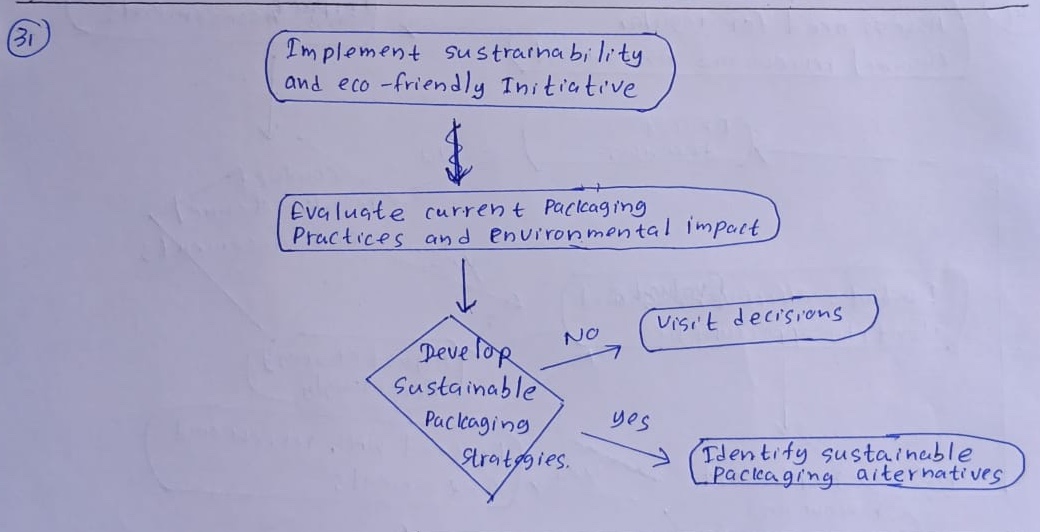 31
Implement sustrainability
and eco-friendly Initiative
Evaluate current Packaging
Practices and environmental impact
Develop
Sustainable
Packaging
Strategies.
NO
Visit decisions
yes
Identify sustainable
Packaging alternatives